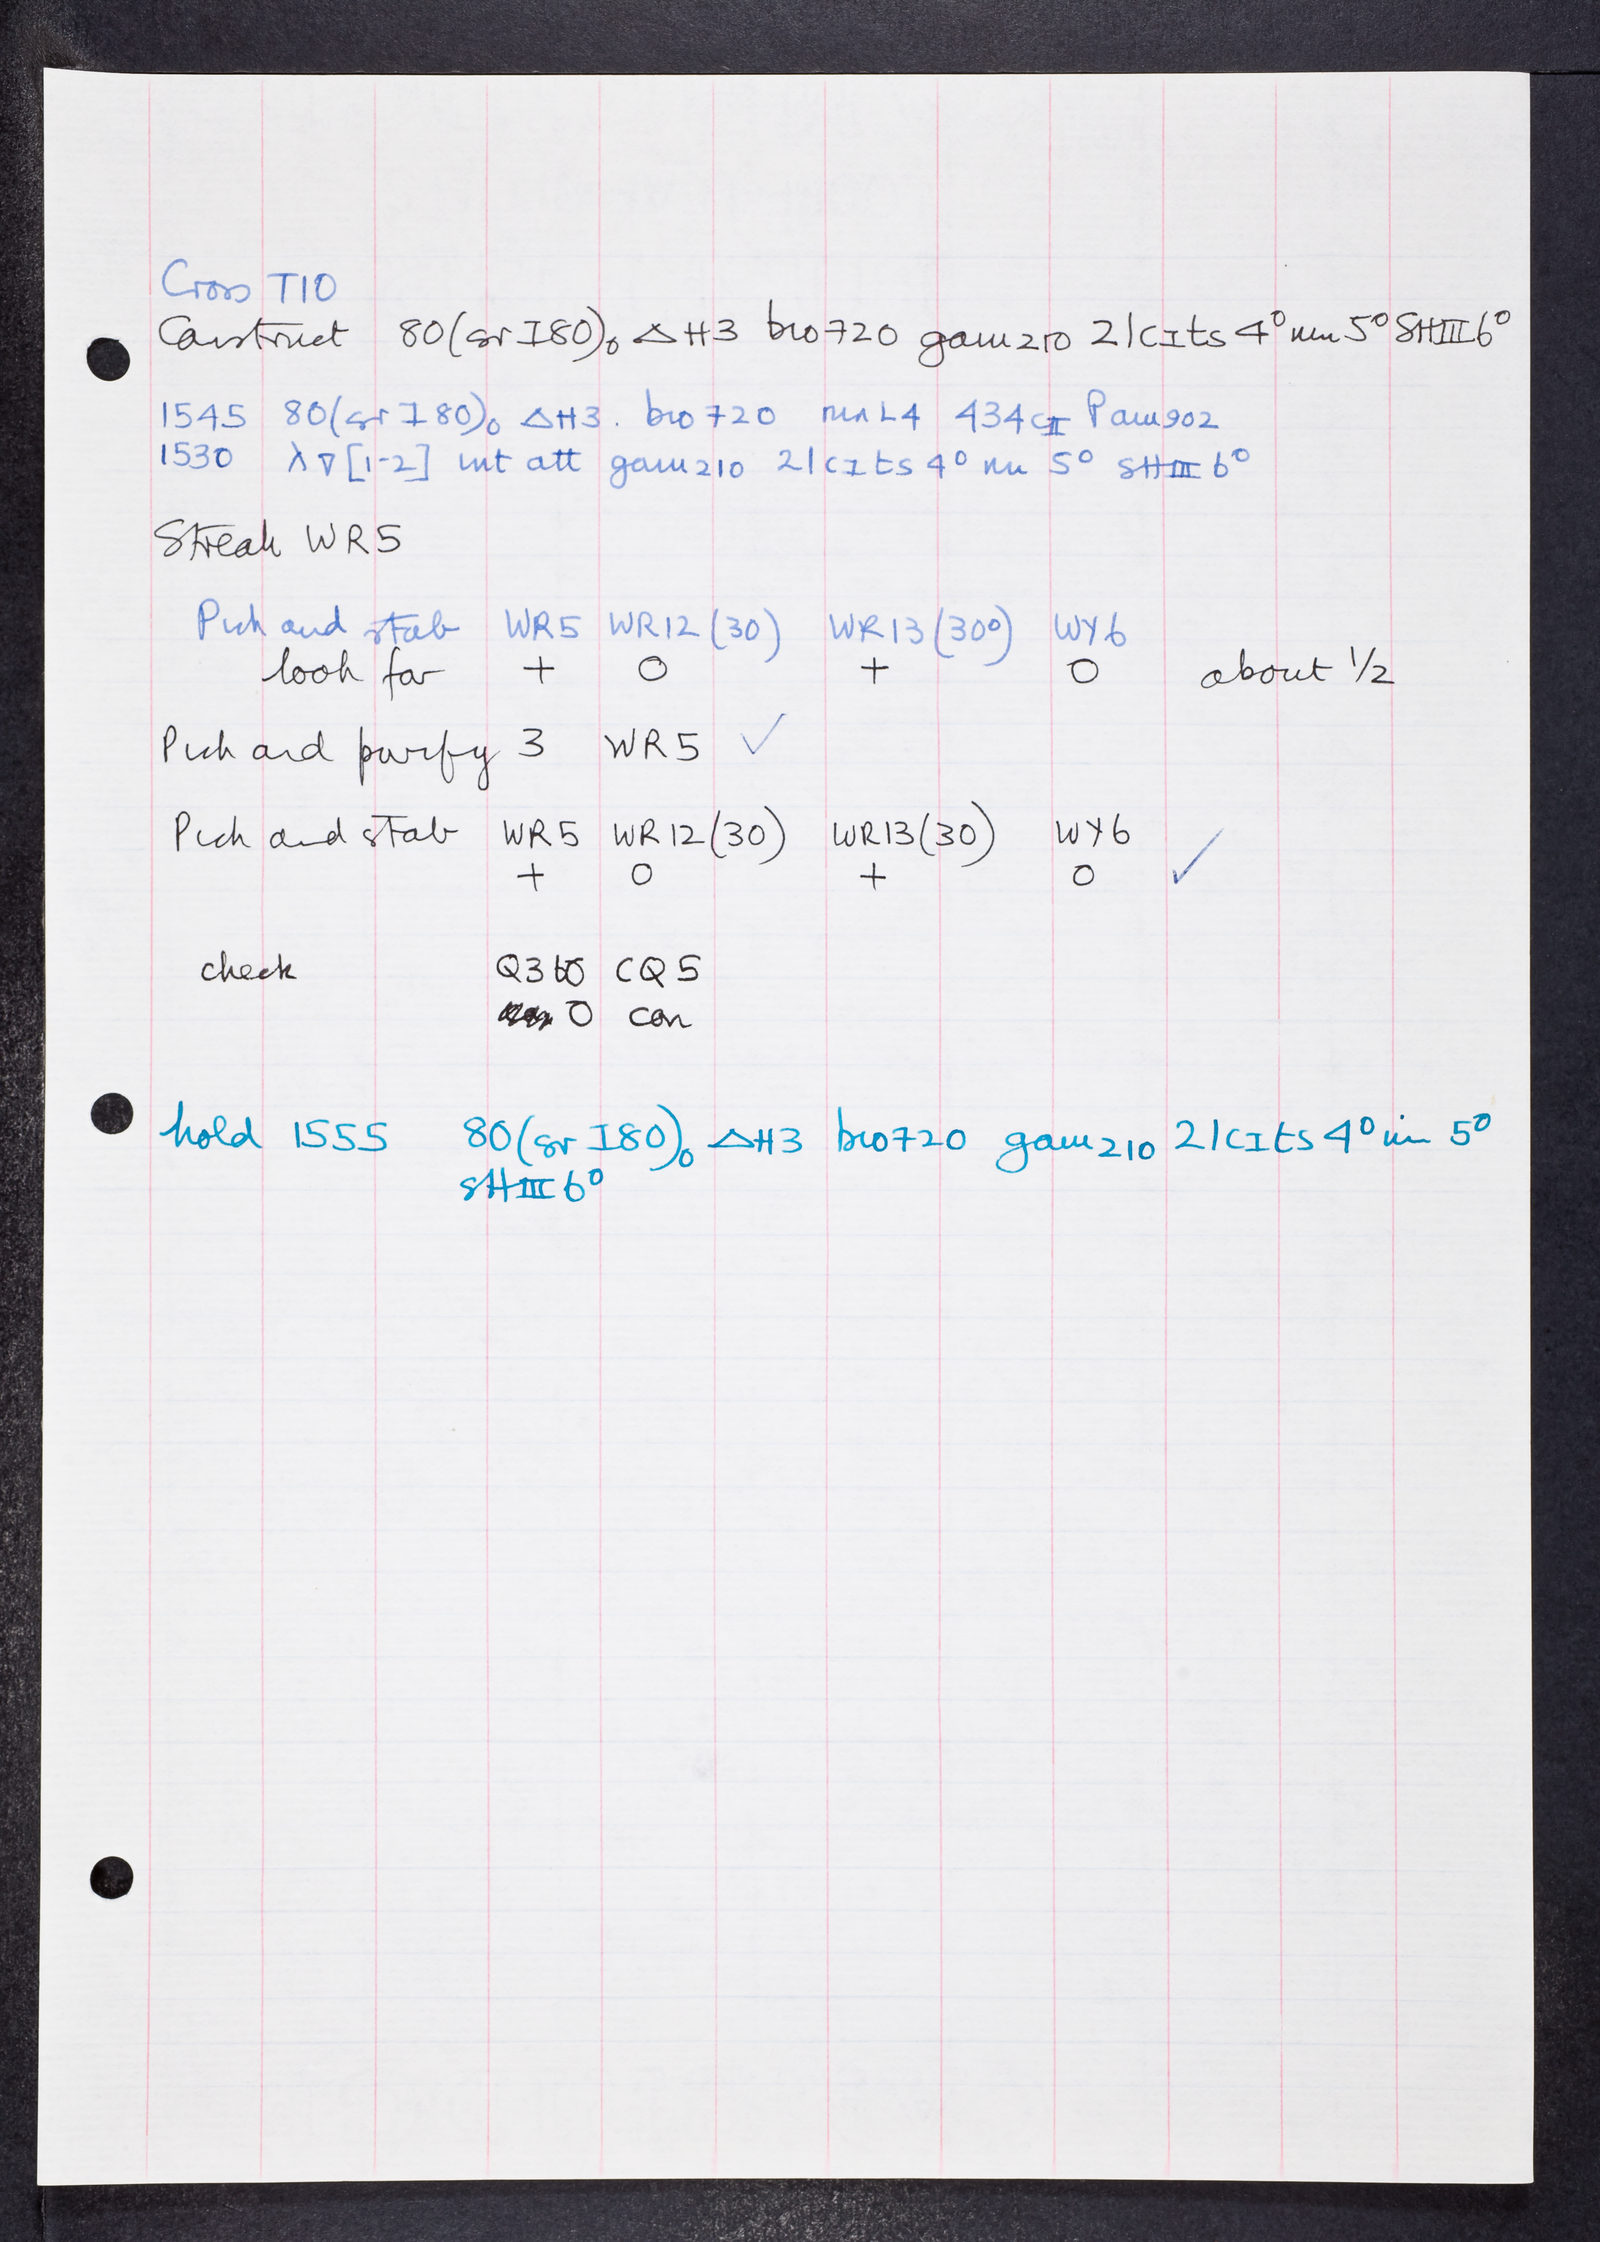 Cross T10
Construct 80(sr I80)₀ ΔH3 bio720 gam210 21cIts 4⁰ nin 5⁰ SHIII 6⁰
1545 80(sr I80)₀ ΔH3. bio720 ninL4 434cII Pam902
1530 λ∇[1-2] int att gam210 21cIts 4⁰ nin 5⁰ sHIII 6⁰
Streak WR5
Pick and stab WR5 WR12(30) WR13(30⁰) WY6
look for + 0 + 0 about 1/2
Pick and purify 3 WR5 ✓
Pick and stab WR5 WR12(30) WR13(30) WY6
+ 0 + 0 ✓
check Q360 CQ5
0 con
hold 1555 80(sr I80)₀ ΔH3 bio720 gam210 21cIts 4⁰ nin 5⁰
sHIII 6⁰